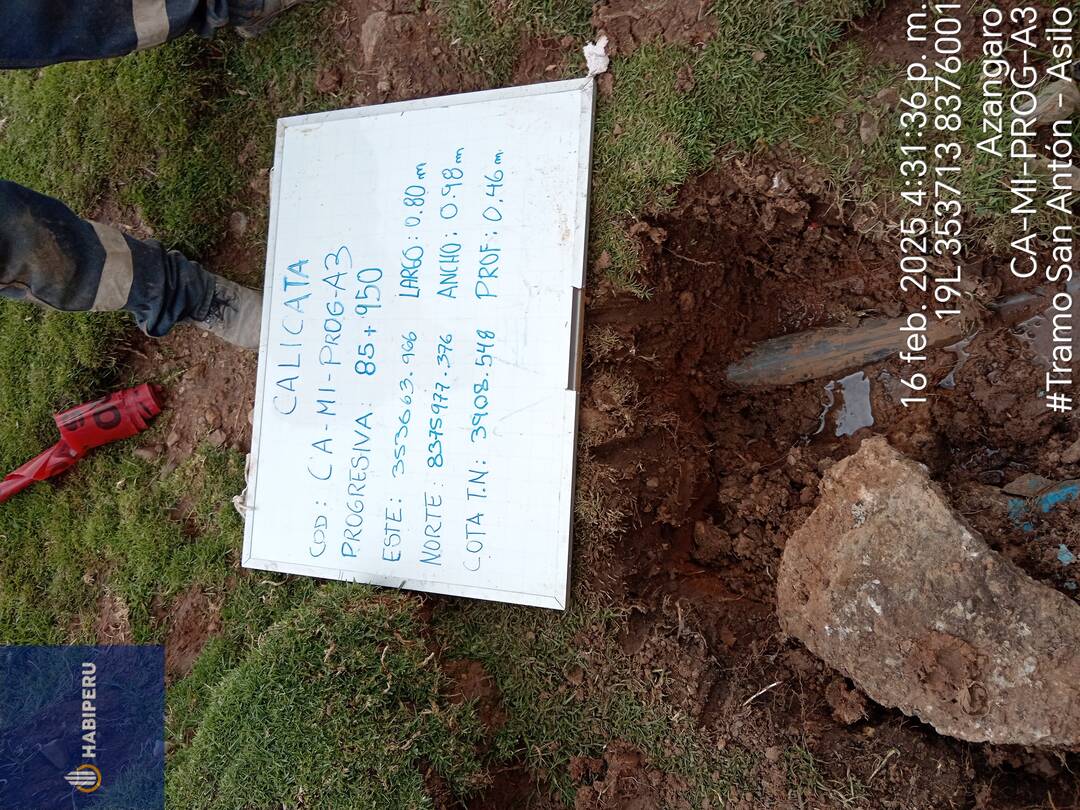 HABIPERU
CALICATA
COD: CA-MI-PROG-A3
PROGRESIVA: 85+950
ESTE: 353663.966 LARGO: 0.80 m
NORTE: 8375977.376 ANCHO: 0.98 m
COTA T.N: 3908.548 PROF: 0.46 m
16 feb. 2025 4:31:36 p. m.
19L 353713 8376001
Azangaro
CA-MI-PROG-A3
#Tramo San Antón - Asilo